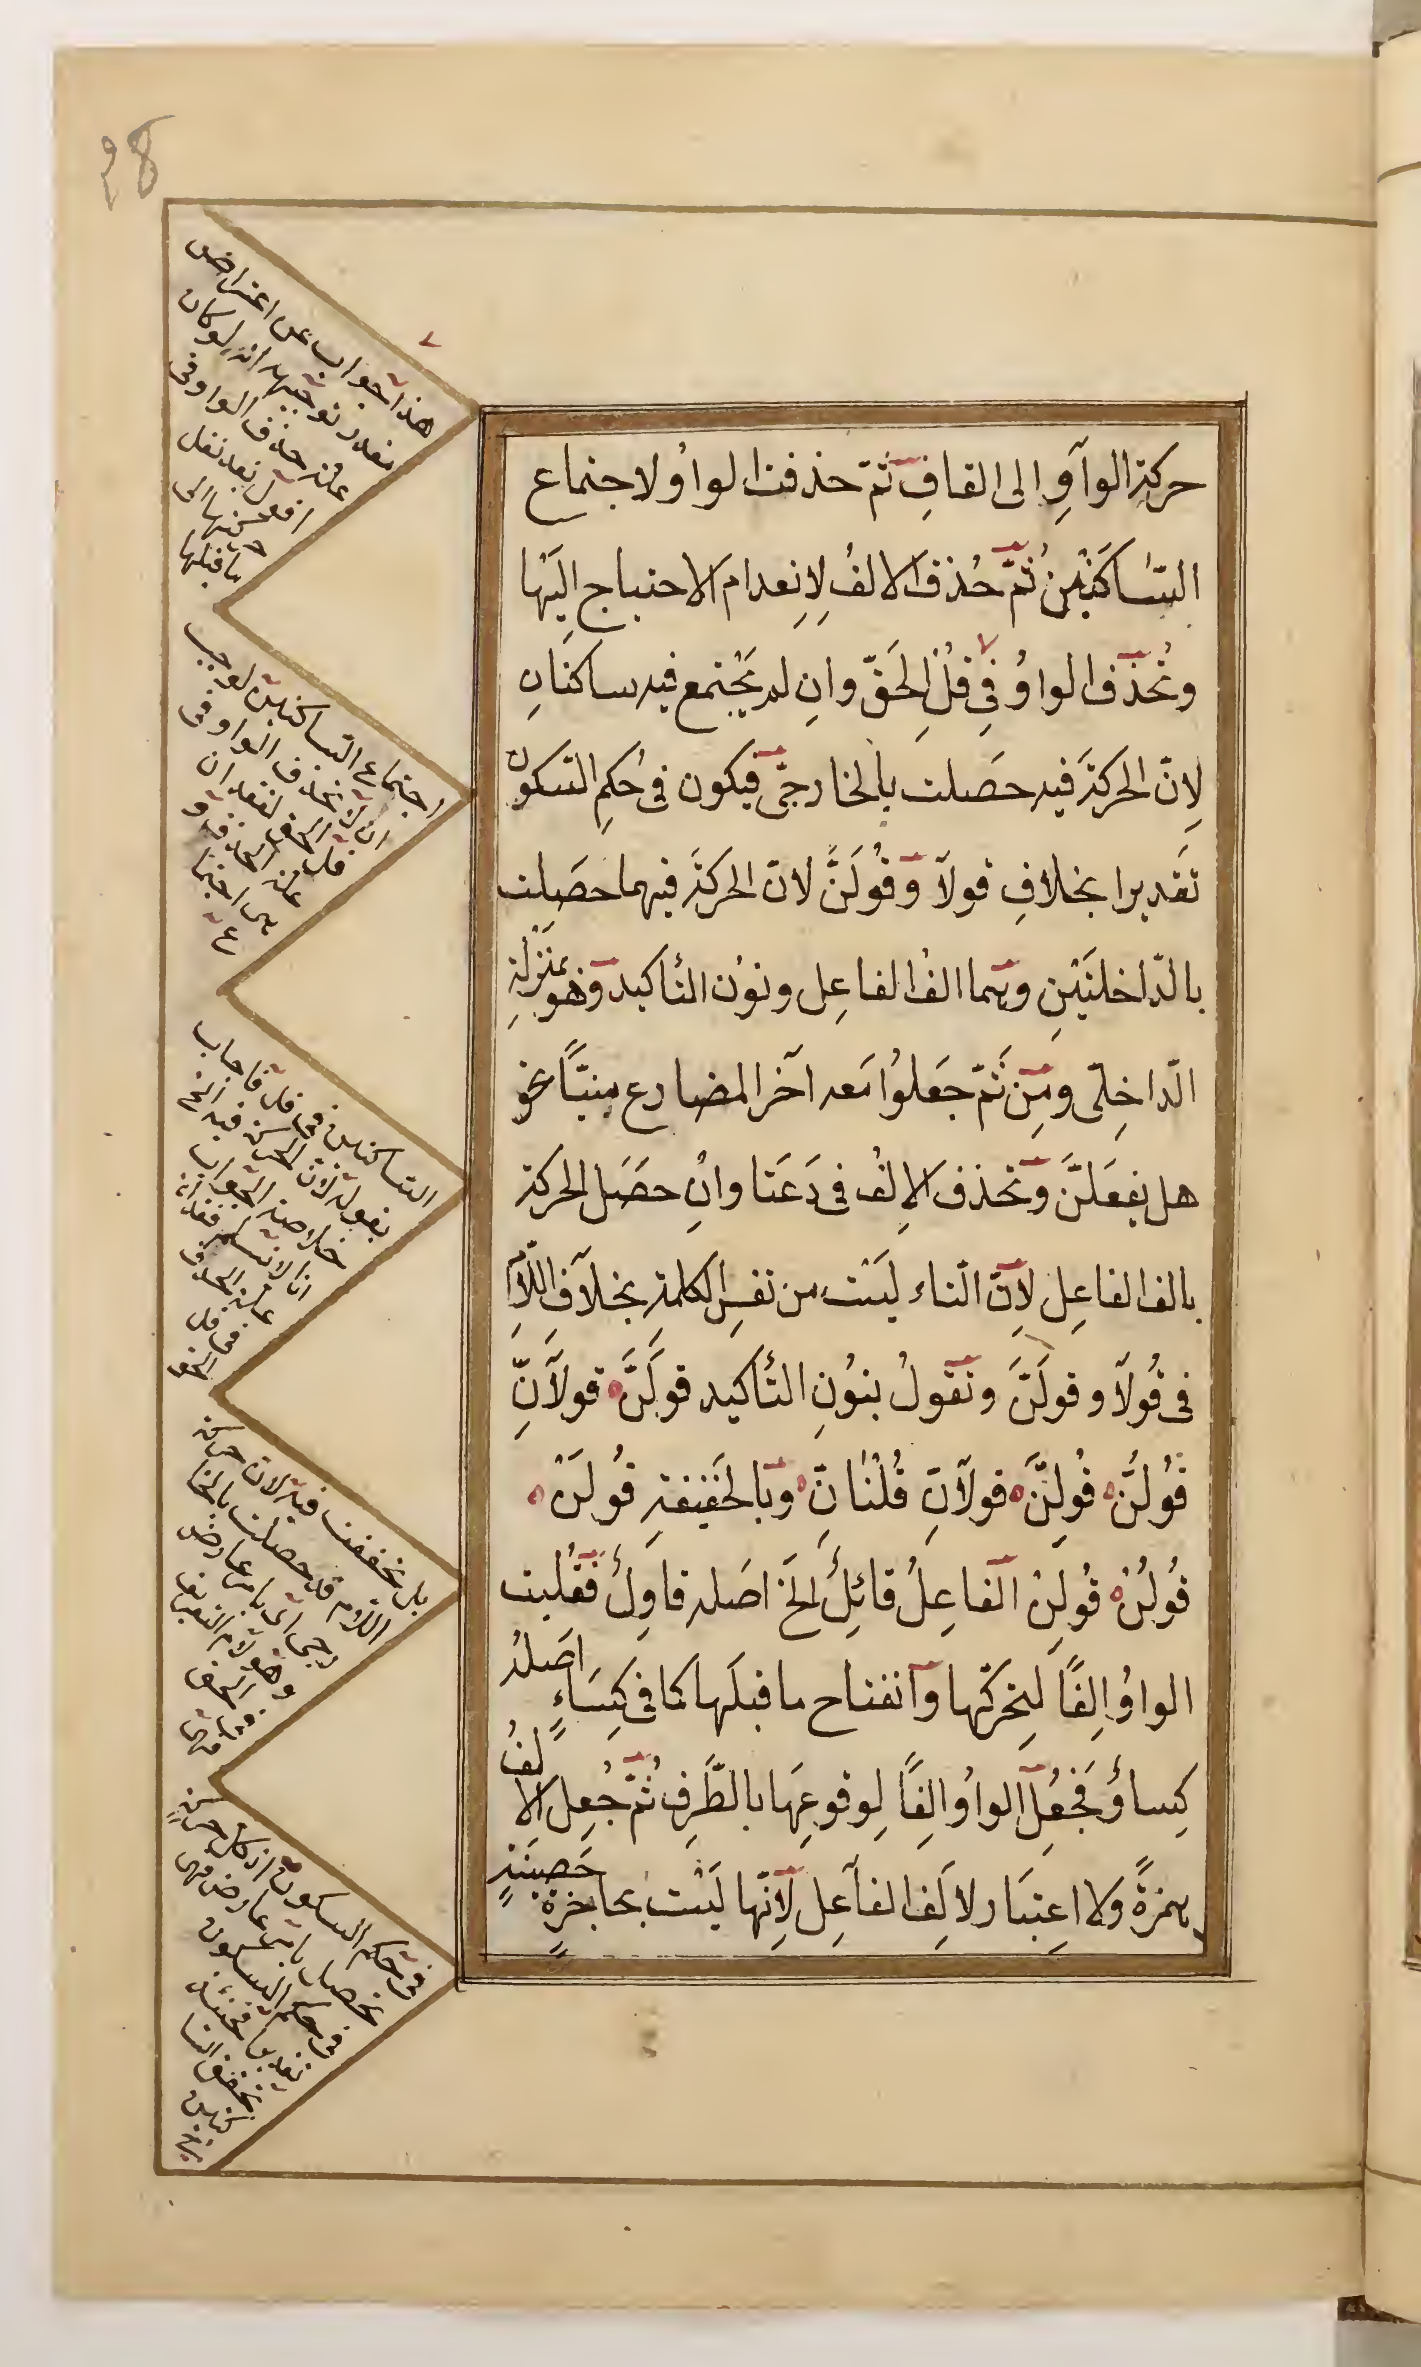 حركة الواو الى القاف ثم حذفت الواو لاجتماع
الساكنين ثم حذف الالف لانعدام الاحتياج اليها
وتحذف الواو في قل الحق وان لم يجتمع فيه ساكنان
لان الحركة فيه حصلت بالخارجى فيكون فى حكم السكون
تقديرا بخلاف قولا وقولن لان الحركة فيهما حصلت
بالداخلتين وهما الف الفاعل ونون التأكيد وهو بمنزلة
الداخلى ومن ثم جعلوا معه آخر المضارع مبنيا نحو
هل يفعلن وتحذف الالف فى دعتا وان حصل الحركة
بالف الفاعل لان التاء ليست من نفس الكلمة بخلاف اللام
فى قولا وقولن وتقول بنون التأكيد قولن قولان
قولن قولن قولان قلنان وبالخفيفة قولن
قولن قولن الفاعل قائل الخ اصله قاول فقلبت
الواو الفا لتحركها وانفتاح ما قبلها كما فى كساء اصله
كساو فجعل الواو الفا لوقوعها بالطرف ثم جعل الالف
همزة ولا اعتبار لالف الفاعل لانها ليست بحاجزة حصينة
هذا جواب عن اعتراض
مقدر توجيهه انه لو كان
علة حذف الواو فى
افعل بعد نقل
حركتها الى
ما قبلها
اجتماع الساكنين لوجب
ان لا تحذف الواو فى
قل الحق لفقدان
علة الحذف و
هى اجتما
ع
الساكنين فى قل فاجاب
بقوله لان الحركة فيه الخ
خلاصة الجواب
انا لا نسلم فقدان
علة الحذف
فى قل
الحق
بل تحققت فيه لان حركة
اللام قد حصلت بالخا
رجى اى بامر عارض
وهو لام التعريف
الحق
فى حكم السكون اذ كل حركة
تحصل بامر عارض فهى
فى حكم السكون
تقديرا فحينئذ
تحقق السا
كنين